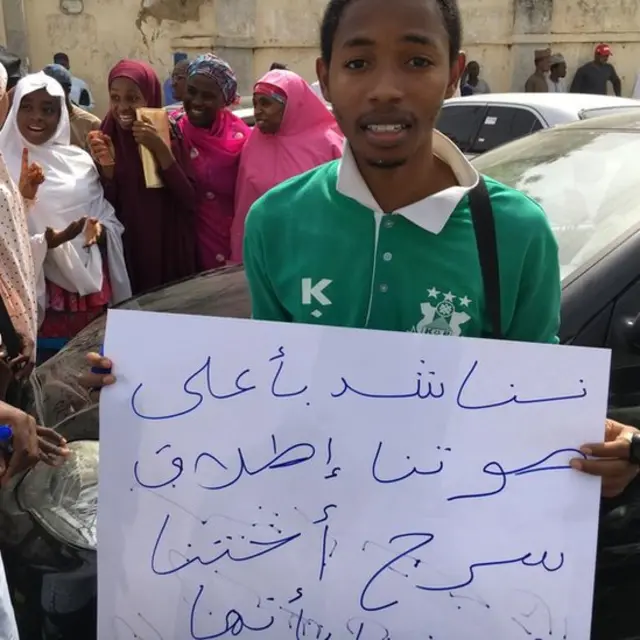 نناشد بأعلى
صوتنا إطلاق
سرح أختنا
بأنها
K